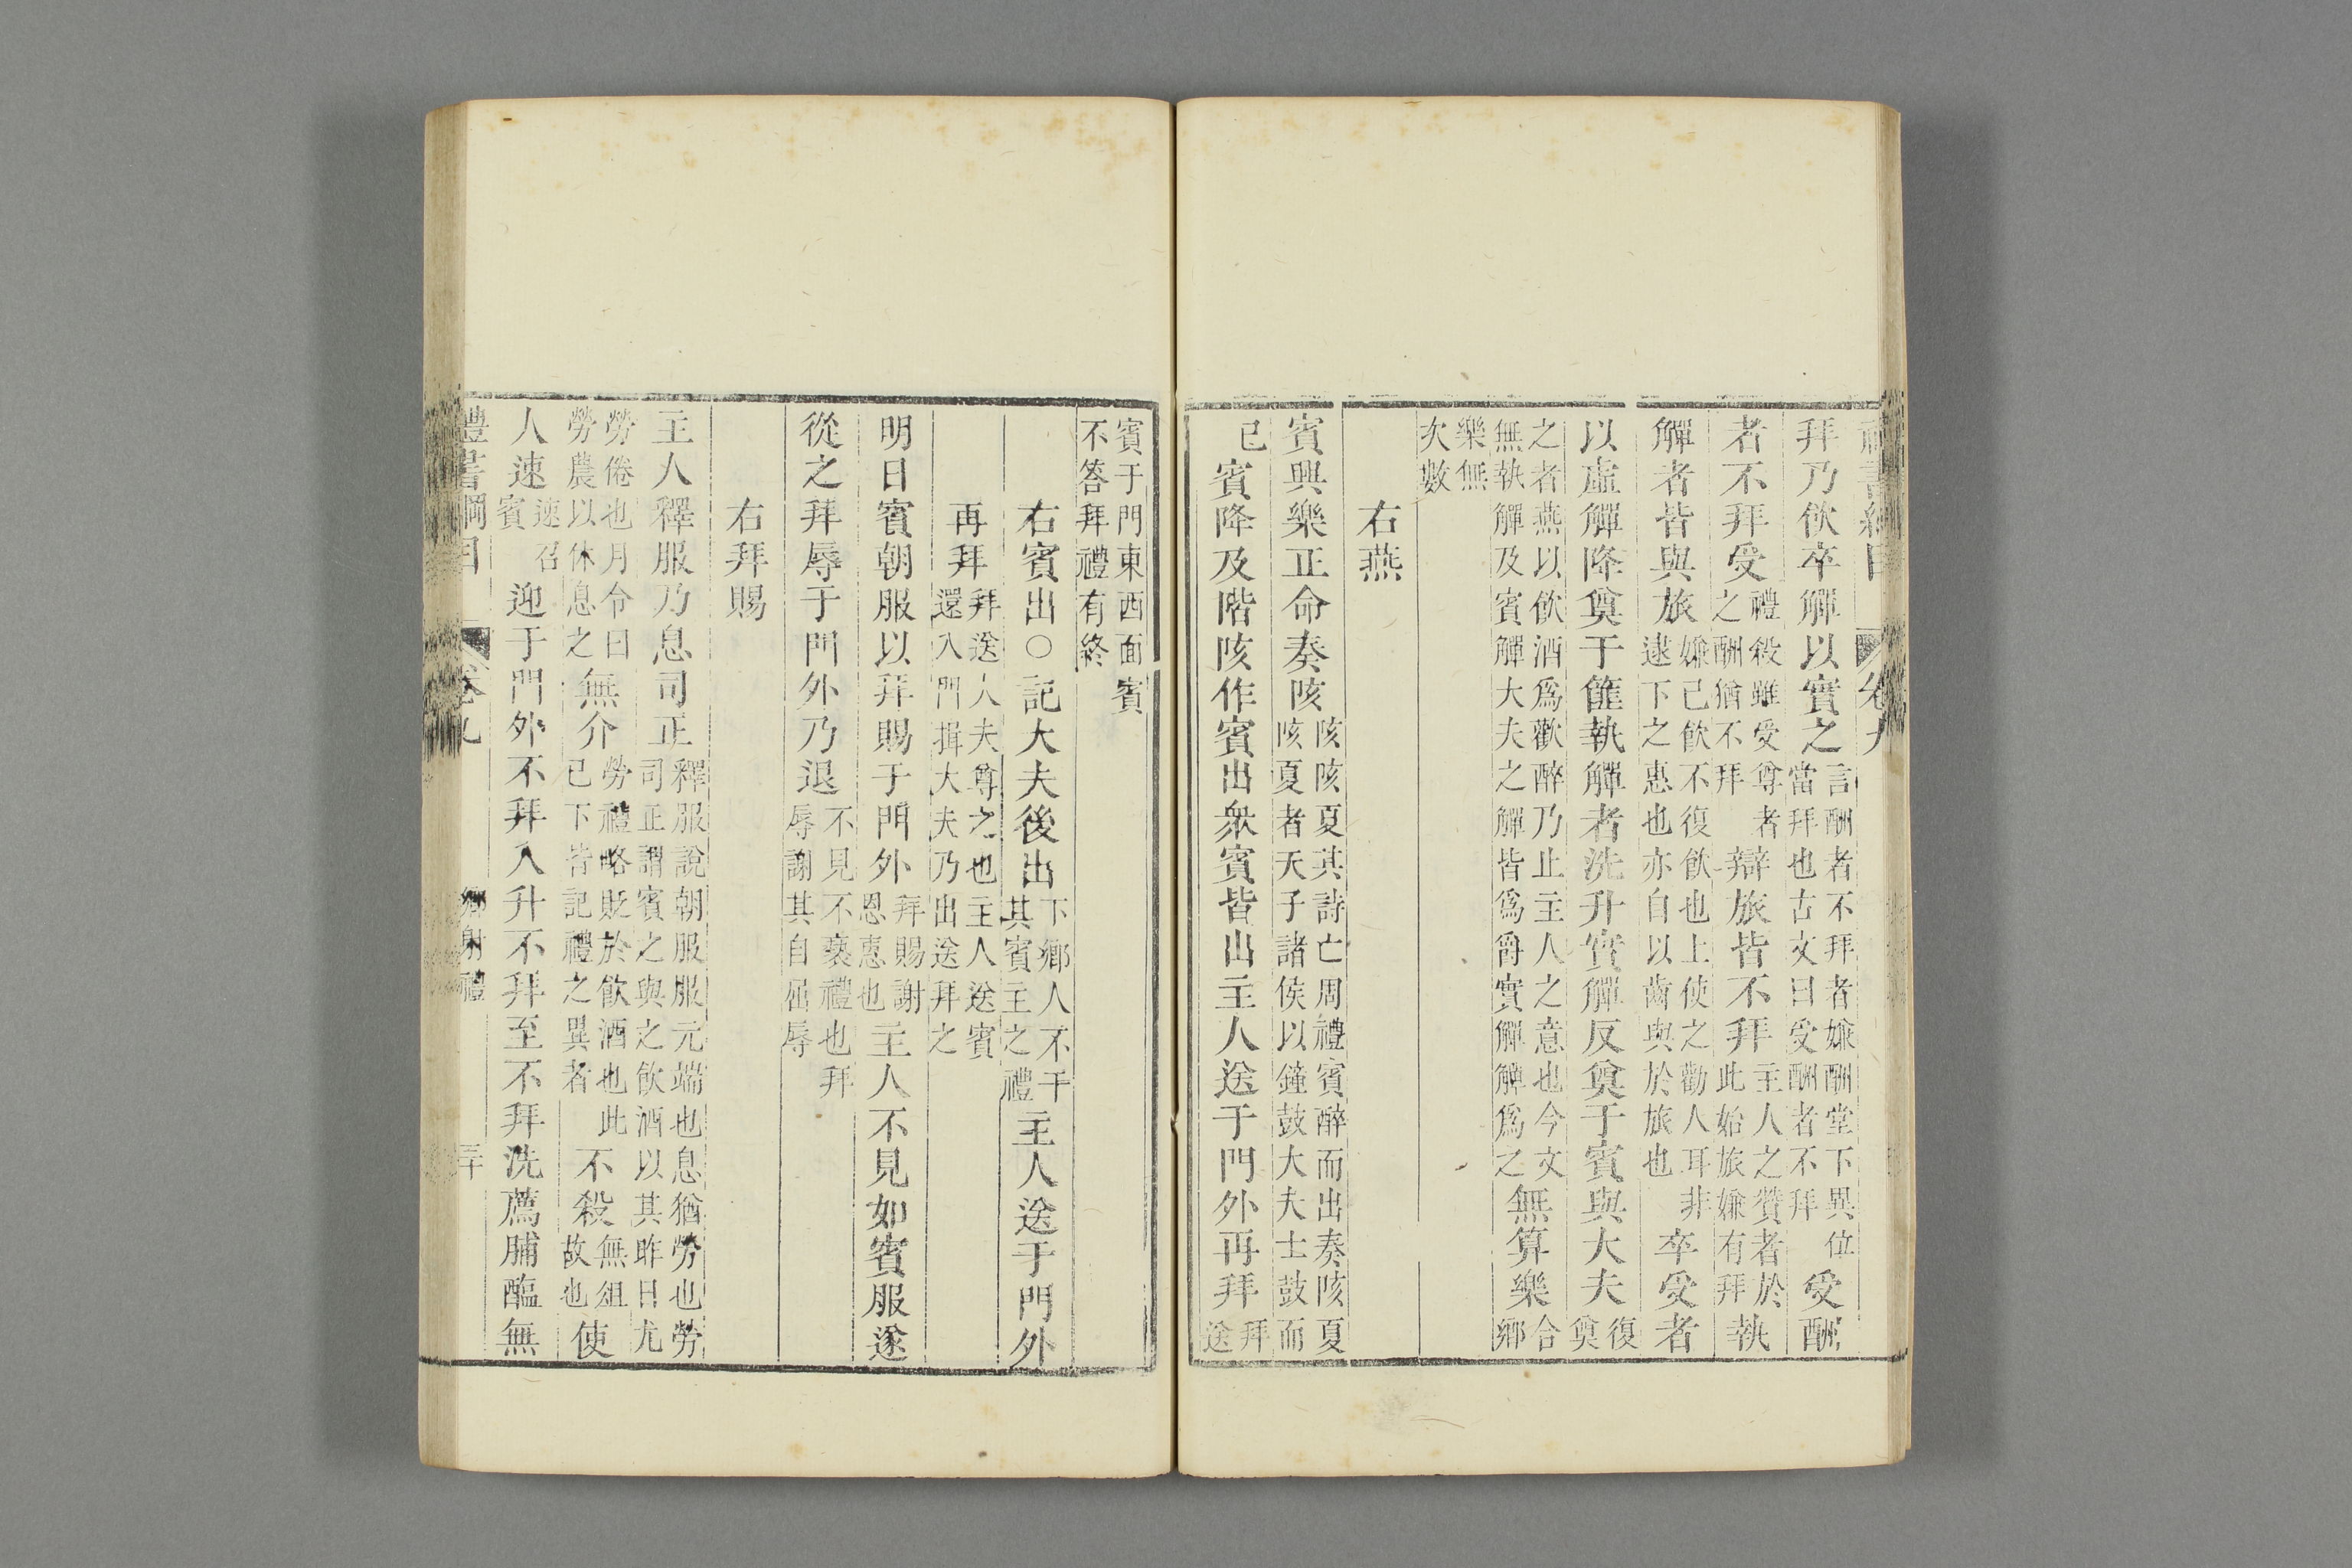 拜乃飲卒觶以實之言酬者不拜者嫌酬堂下異位當拜也古文曰受酬者不拜受酬
者不拜受禮殺雖受尊者之酬猶不拜辯旅皆不拜主人之贊者於此始旅嫌有拜執
觶者皆與旅嫌己飲不復飲也上使之勸人耳非逮下之惠也亦自以齒與於旅也卒受者
以虛觶降奠于篚執觶者洗升實觶反奠于賓與大夫復奠
之者燕以飲酒爲歡醉乃止主人之意也今文無執觶及賓觶大夫之觶皆爲爵實觶觶爲之無算樂合鄉
樂無次數
右燕
賓興樂正命奏陔陔陔夏其詩亡周禮賓醉而出奏陔夏陔夏者天子諸侯以鐘鼓大夫士鼓而
已賓降及階陔作賓出衆賓皆出主人送于門外再拜拜送
賓于門東西面賓不答拜禮有終
右賓出○記大夫後出下鄉人不干其賓主之禮主人送于門外
再拜拜送大夫尊之也主人送賓還入門揖大夫乃出送拜之
明日賓朝服以拜賜于門外拜賜謝恩惠也主人不見如賓服遂
從之拜辱于門外乃退不見不褻禮也拜辱謝其自屈辱
右拜賜
主人釋服乃息司正釋服說朝服服元端也息猶勞也勞司正謂賓之與之飲酒以其昨日尤
勞倦也月令曰勞農以休息之無介勞禮略貶於飲酒也此已下皆記禮之異者不殺無俎故也使
人速速召賓迎于門外不拜入升不拜至不拜洗薦脯醢無
禮書綱目 卷九 鄉射禮 三十